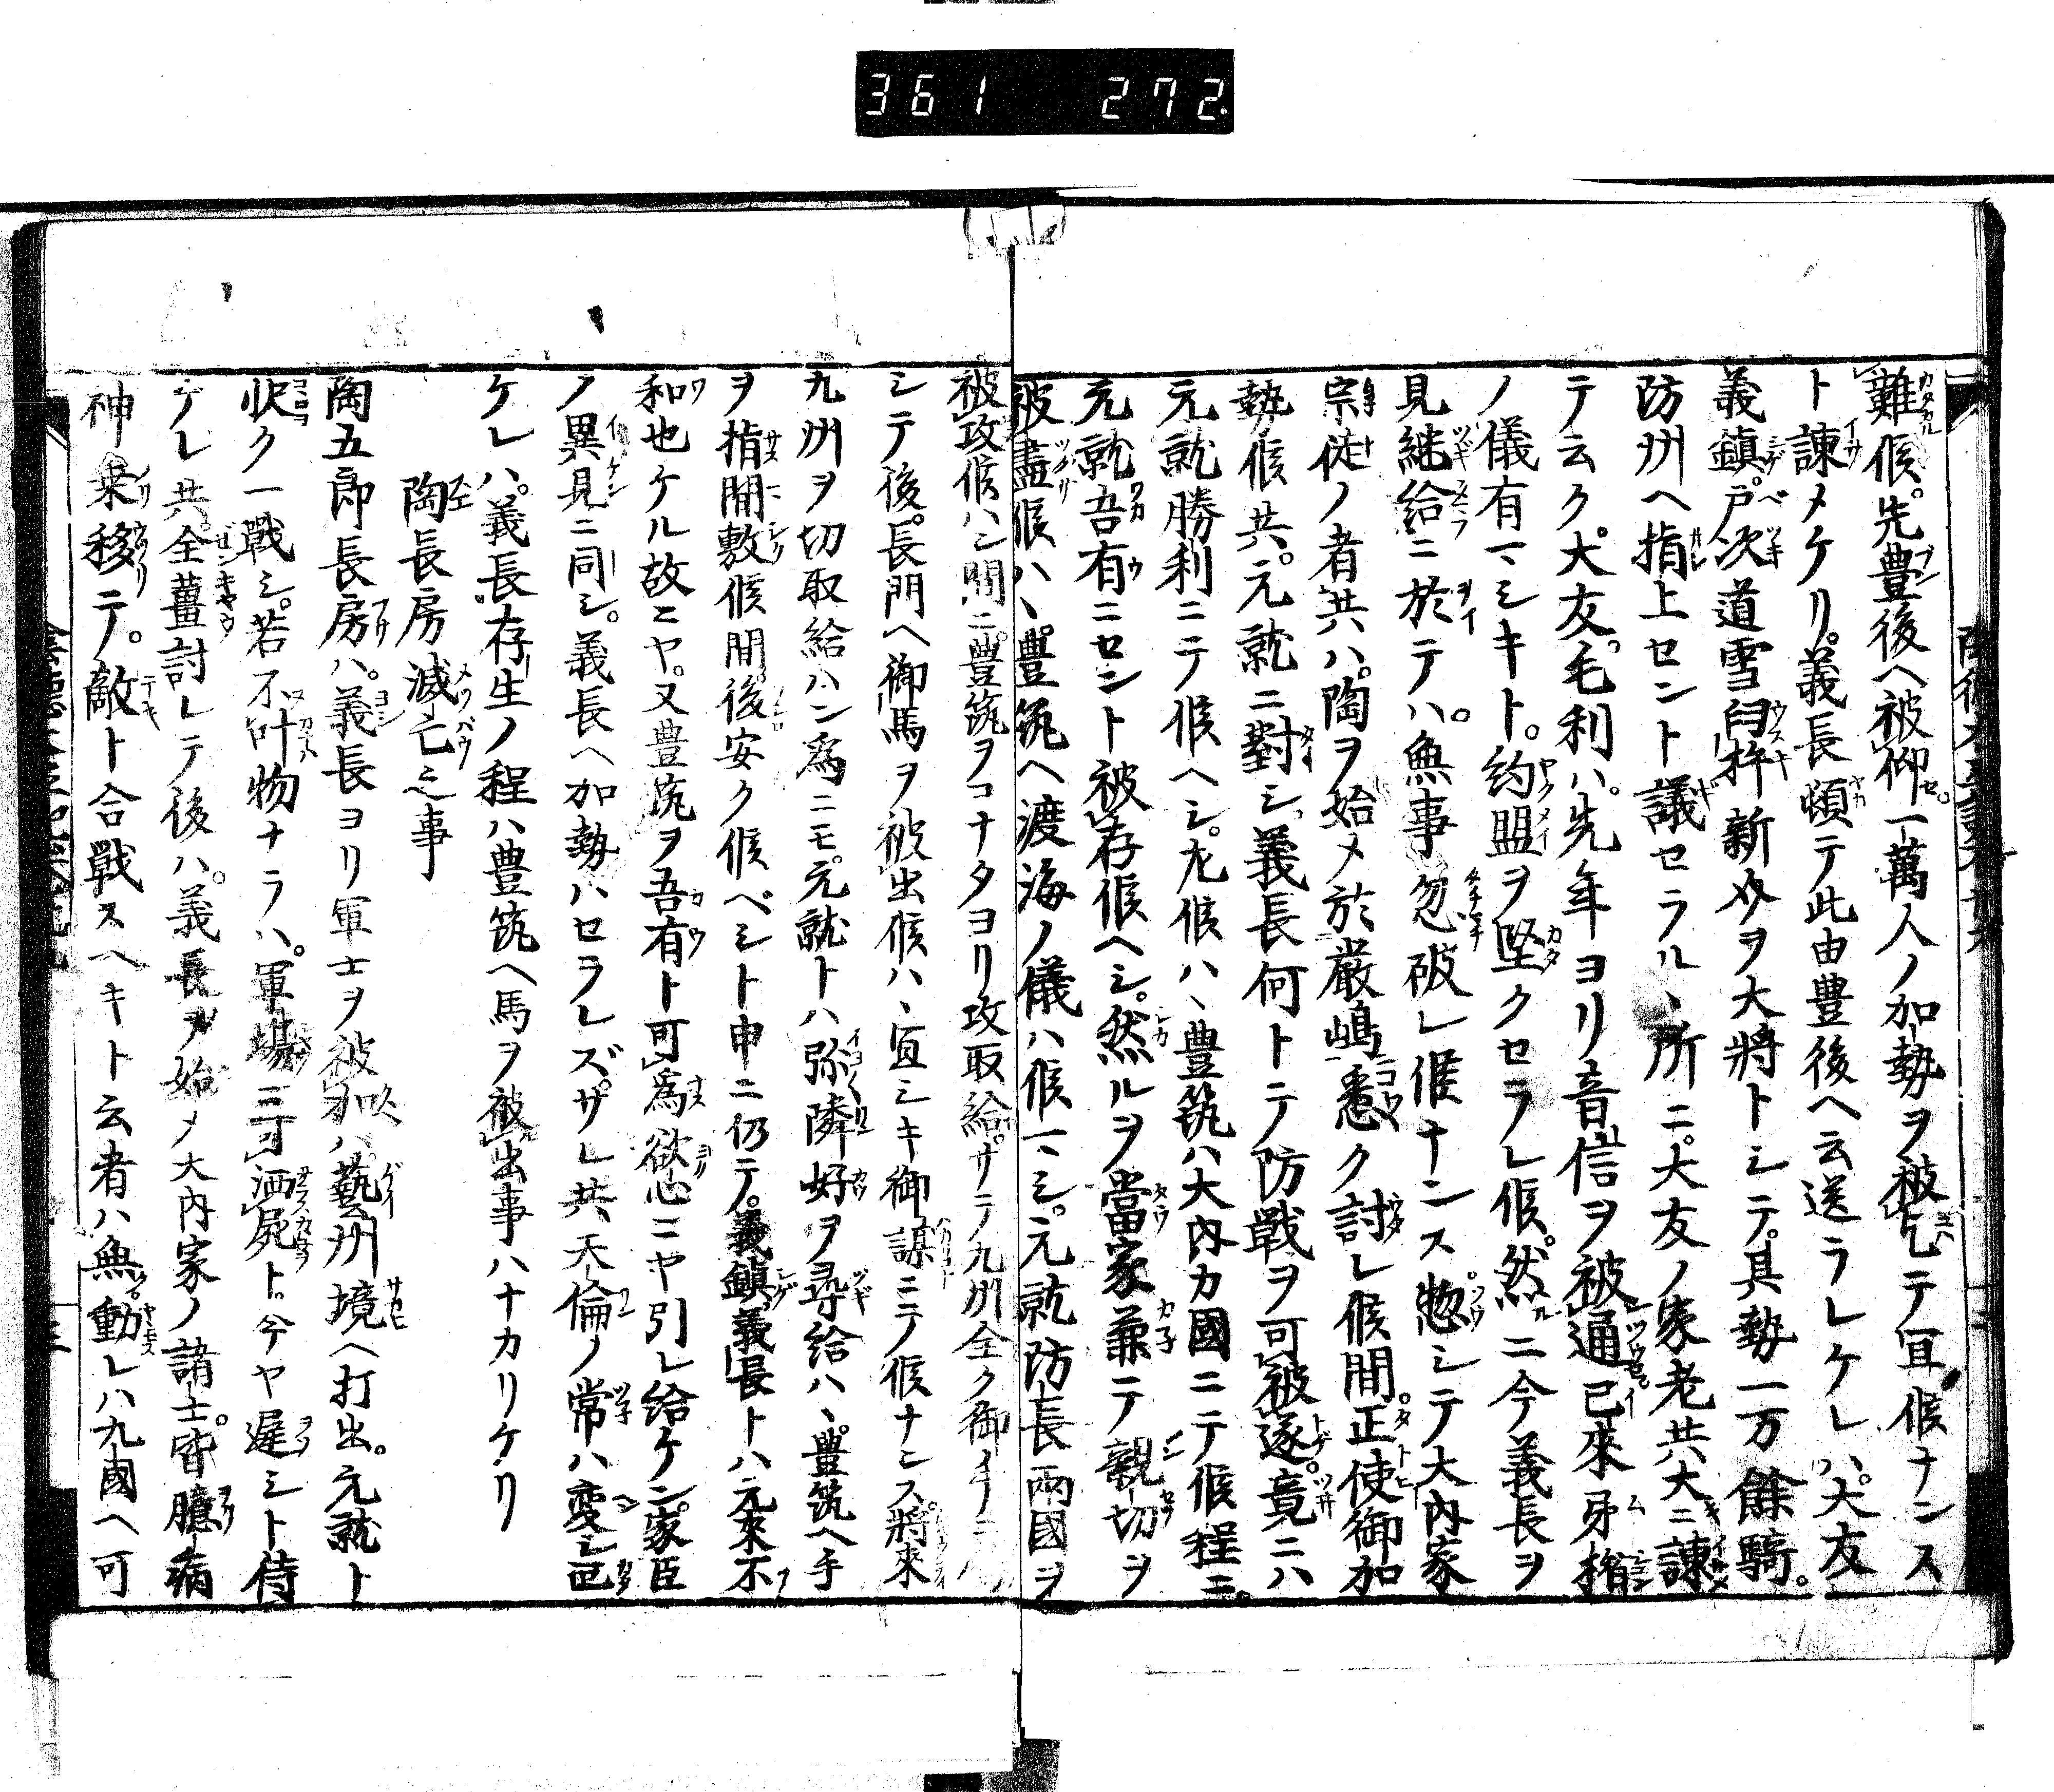 361 272
難候。先豊後ヘ被仰一萬人ノ加勢ヲ被乞テ冝候ナンス
ト諫メケリ。義長頓テ此由豊後ヘ云送ラレケレハ。大友
義鎮。戸次道雪臼杵新介ヲ大將トシテ。其勢一万餘騎。
防州ヘ指上セント議セラルヽ所ニ。大友ノ家老共大ニ諫
テ云ク。大友。毛利ハ。先年ヨリ音信ヲ被通已來身括
ノ儀有マシキト。約盟ヲ堅クセラレ候。然ニ今義長ヲ
見継給ニ於テハ。無事忽破レ候ナンス。惣シテ大内家
宗徒ノ者共ハ。陶ヲ始メ於嚴嶋悉ク討レ候間。正使御加
勢候共。元就ニ對シ義長何トテ防戦ヲ可被遂。竟ニハ
元就勝利ニテ候ヘシ。尤候ハヽ豊筑ハ大内カ國ニテ候程ニ。
元就吾有ニセント被存候ヘシ。然ルヲ當家兼テ親切ヲ
被盡候ハヽ。豊筑ヘ渡海ノ儀ハ候マシ。元就防長兩國ヲ
被攻候ハン間ニ。豊筑ヲコナタヨリ攻取給サテ九州全ク御手ニ
シテ後。長門ヘ御馬ヲ被出候ハヽ冝シキ御謀ニテ候ナンス。將來
九州ヲ切取給ハン爲ニモ。元就トハ弥隣好ヲ尋給ハヽ。豊筑ヘ手
ヲ指間敷候間。後安ク候ベシト申ニ仍テ。義鎮義長トハ元來不
和也ケル故ニヤ。又豊筑ヲ吾有ト可爲欲心ニヤ引レ給ケン。家臣
ノ異見ニ同シ。義長ヘ加勢ハセラレズザレ共天倫ノ常ハ変シ叵
ケレハ。義長存生ノ程ハ豊筑ヘ馬ヲ被出事ハナカリケリ
陶長房滅亡之事
陶五郎長房ハ。義長ヨリ軍士ヲ被加ハ。藝州境ヘ打出。元就ト
快ク一戰シ。若不叶物ナラハ。軍場ニ可洒屍ト。今ヤ遲シト待
ケレ共。全薑討レテ後ハ。義長ヲ始メ大内家ノ諸士。皆臆病
神乗移テ。敵ト合戰スヘキト云者ハ無。動レハ九國ヘ可